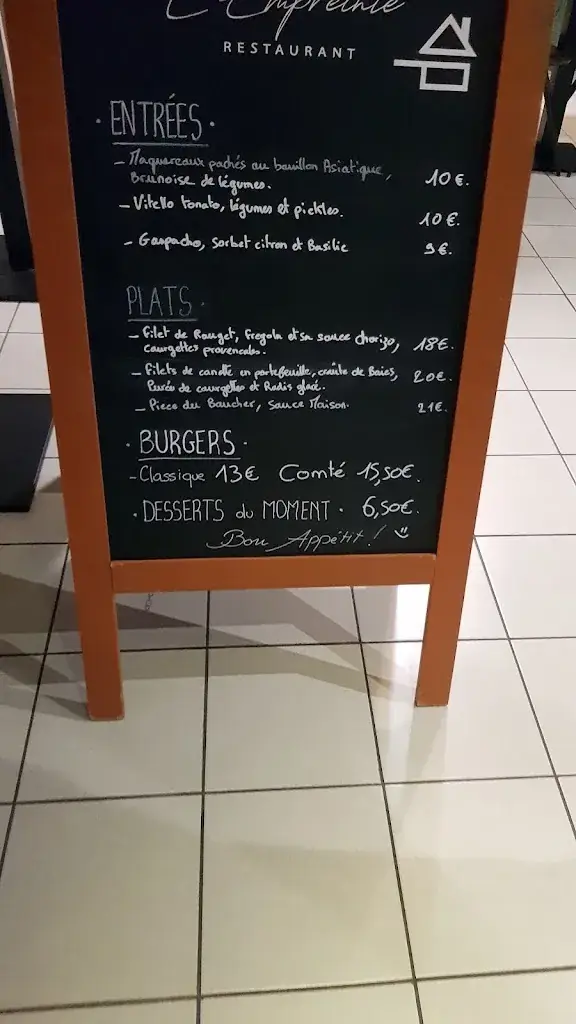 L'Empreinte
RESTAURANT
· ENTRÉES ·
- Maquereaux pochés au bouillon Asiatique,
Brunoise de légumes. 10€.
- Vitello Tonato, légumes et pickles. 10€.
- Gaspacho, Sorbet citron et Basilic 9€.
PLATS ·
- Filet de Rouget, Fregola et sa sauce chorizo, 18€.
courgettes provençales.
- Filets de canette en portefeuille, croûte de Baies, 20€.
Purée de courgettes et Radis glacé.
- Piece du Boucher, Sauce Maison. 21€.
· BURGERS ·
- Classique 13€ Comté 15,50€.
· DESSERTS du MOMENT · 6,50€.
Bon Appétit !